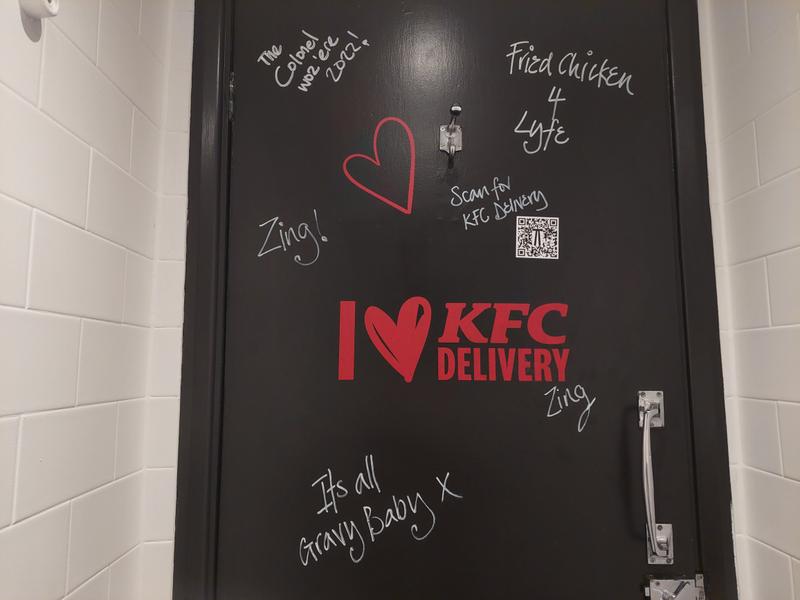 The
Colonel
woz'ere
2022!
Fried Chicken
4
Lyfe
Scan for
KFC Delivery
Zing!
I KFC
DELIVERY
Zing
It's all
Gravy Baby X